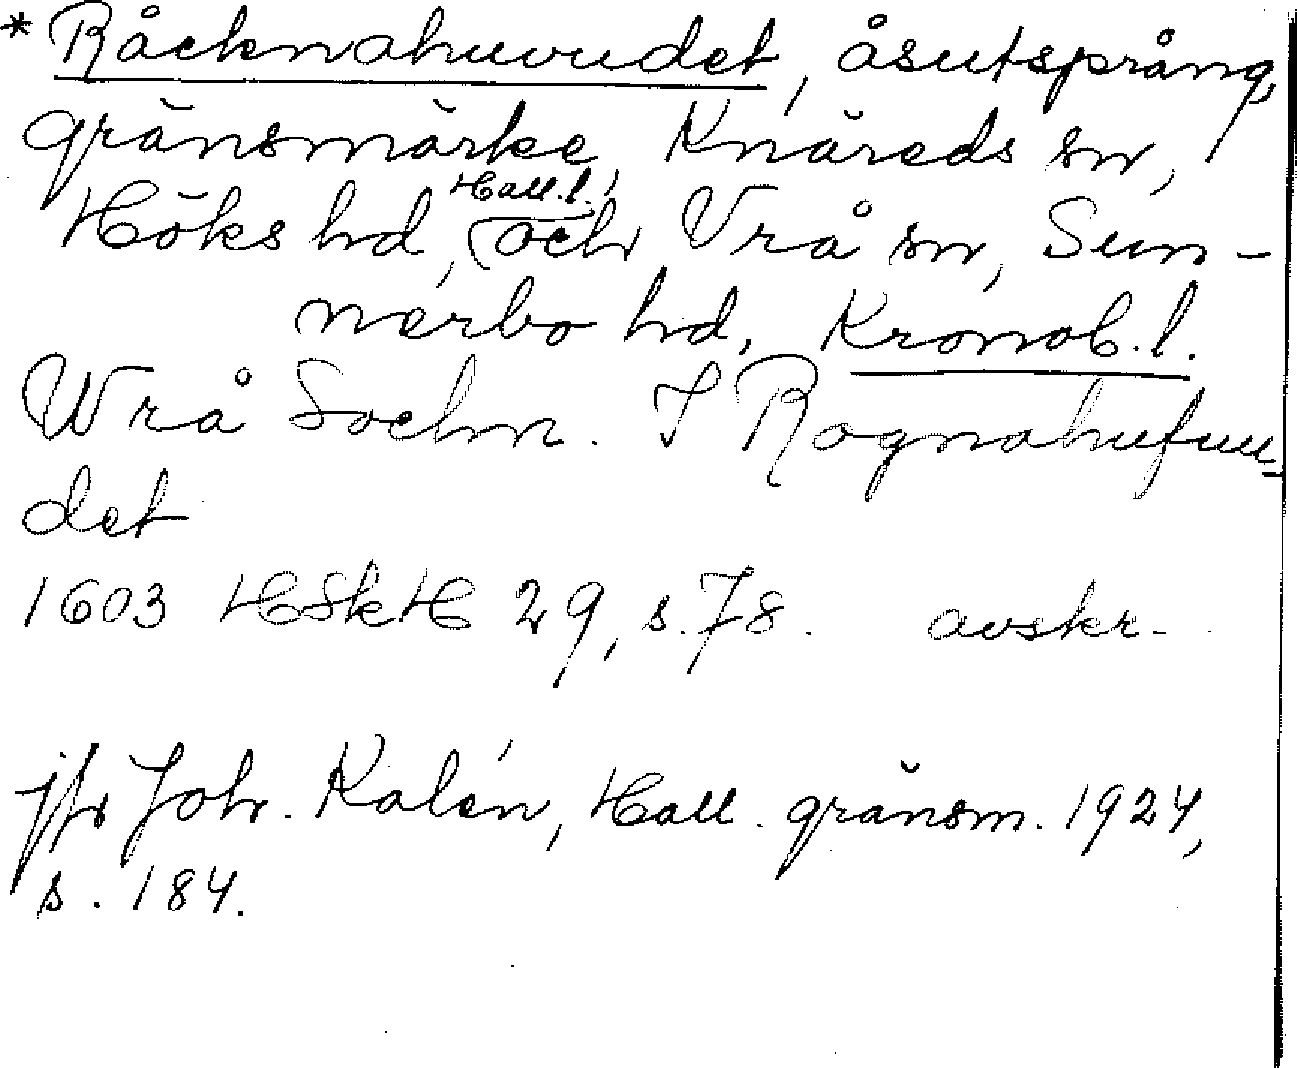 * Råcknahuvudet, åsutsprång,
gränsmärke, Knäreds sn,
Höks hd, Hall. l. och Vrå sn, Sun-
nerbo hd, Kronob. l.
Wrå Sochn. I Rognahufuu-
det
1603 HSkH 29, s. 78. avskr.
jfr Joh. Kalén, Hall. gränsm. 1924,
s. 184.